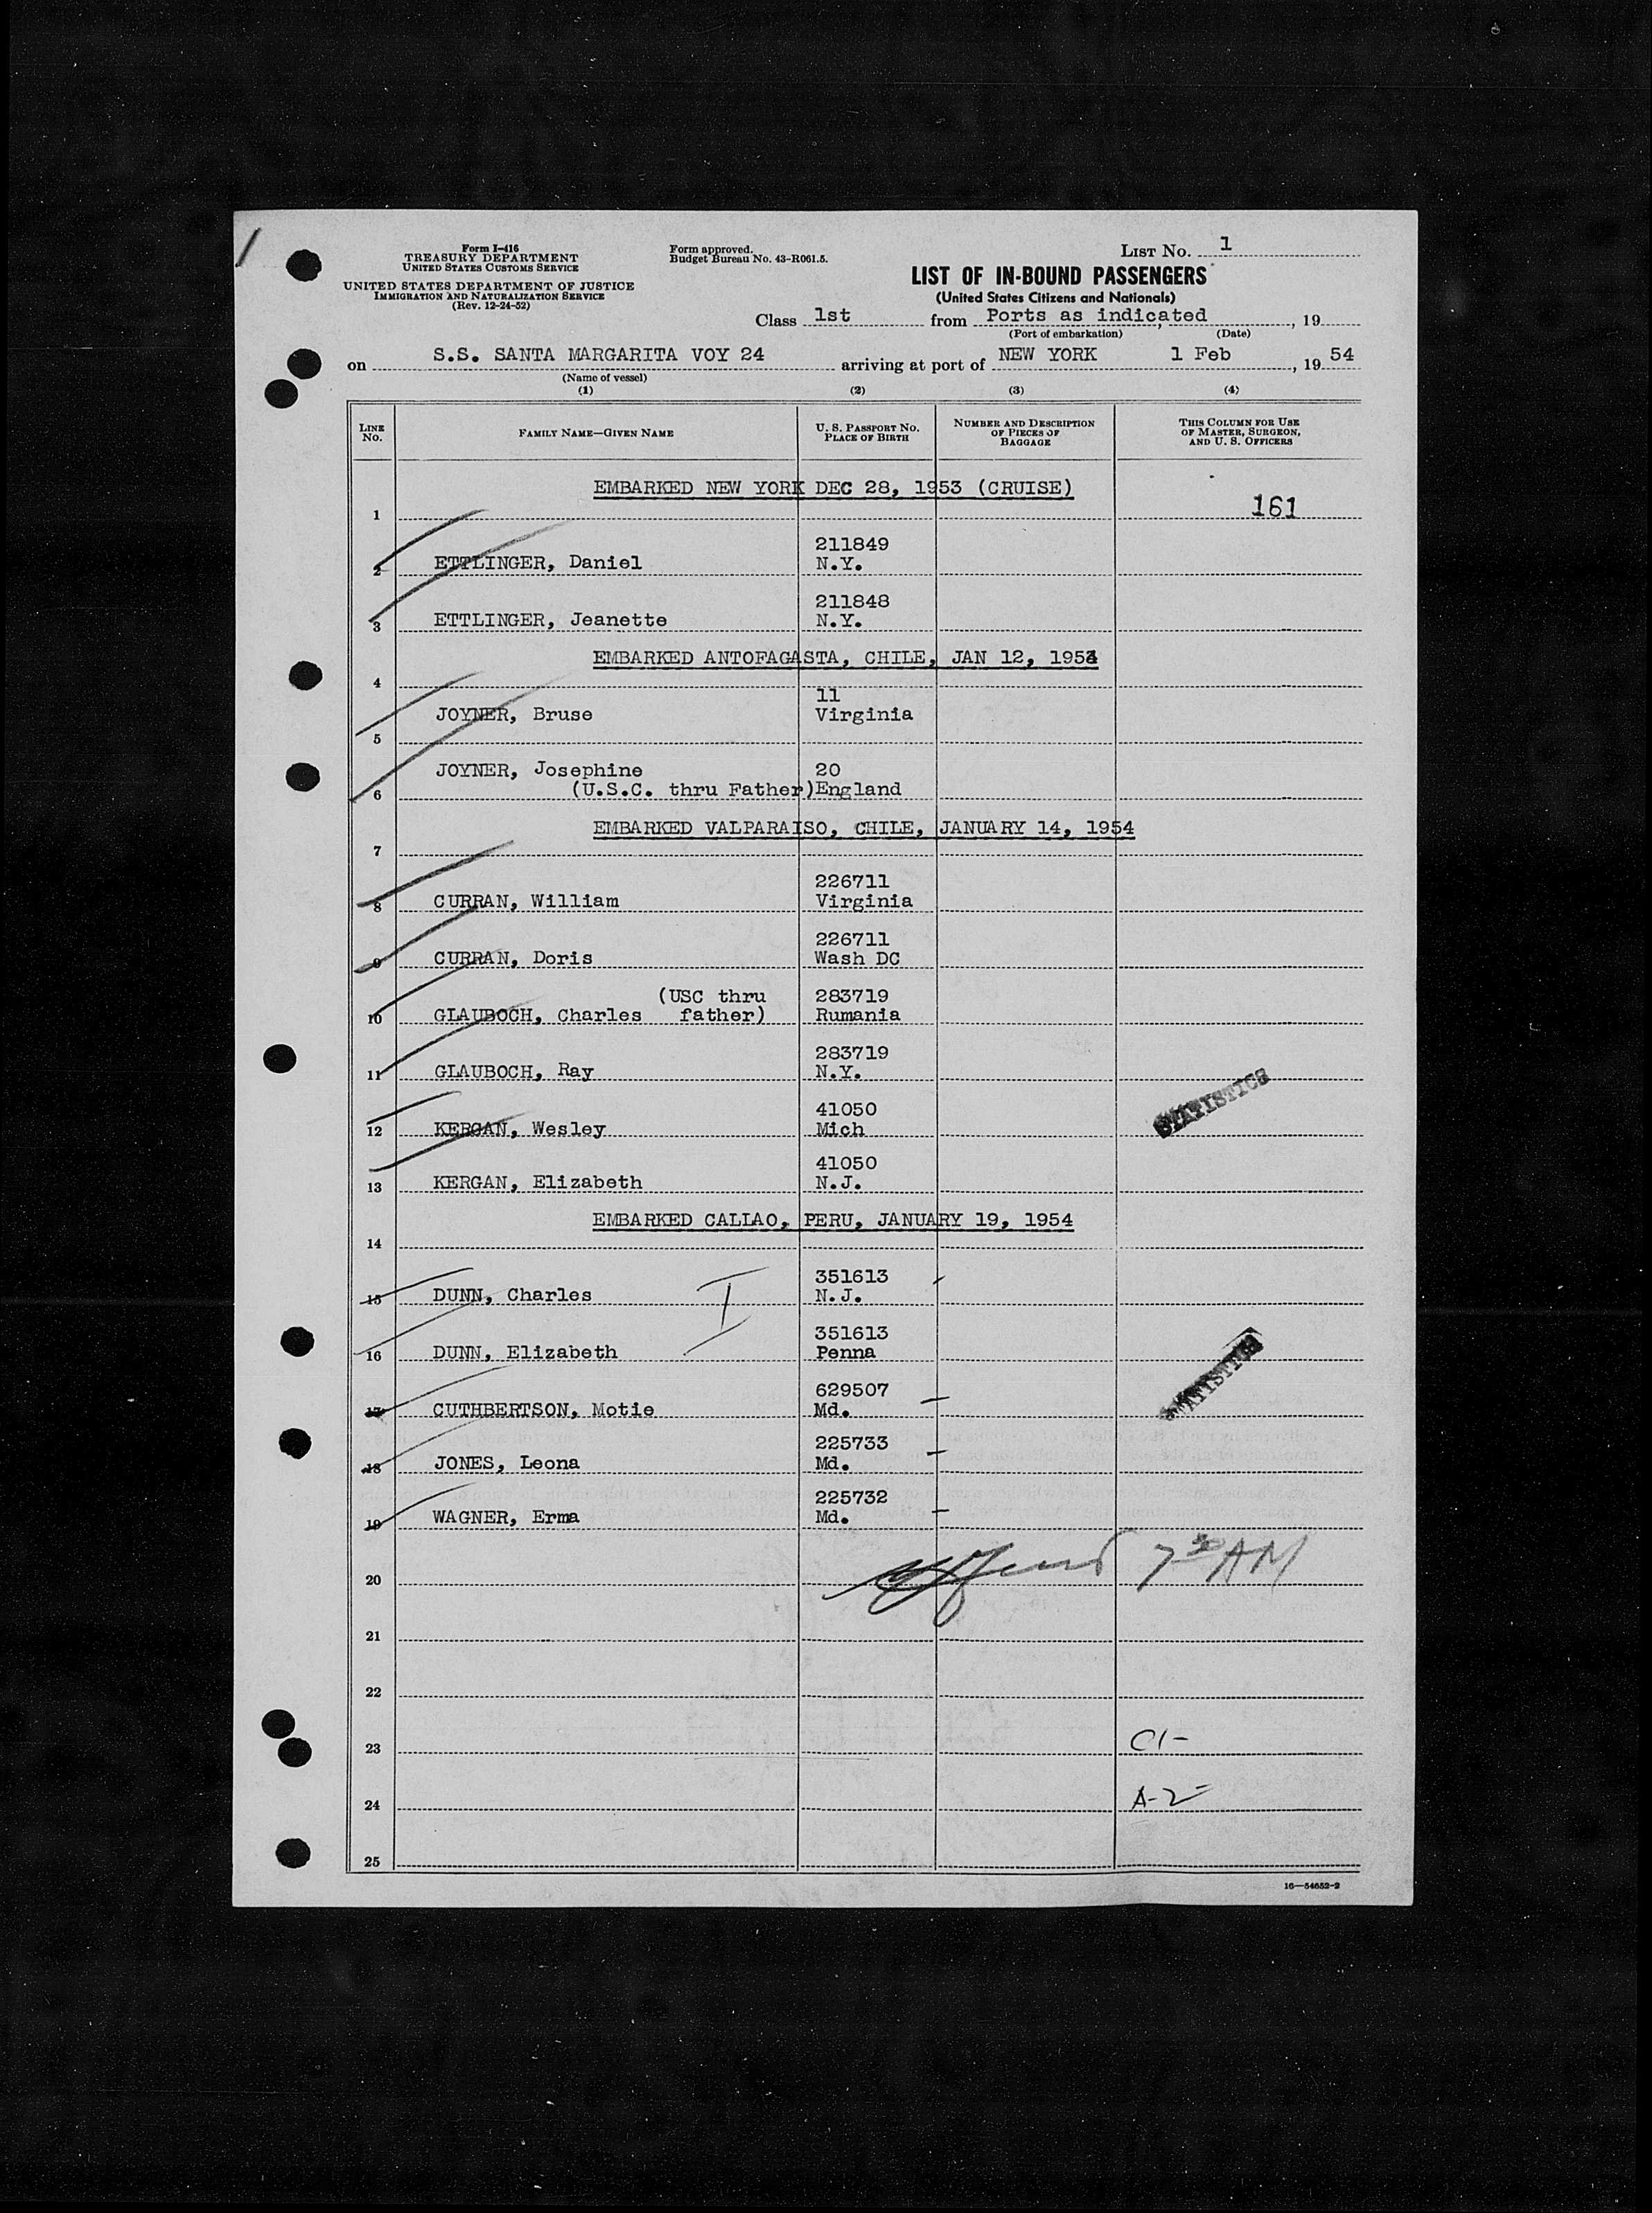 1
Form I-416
TREASURY DEPARTMENT
UNITED STATES CUSTOMS SERVICE
UNITED STATES DEPARTMENT OF JUSTICE
IMMIGRATION AND NATURALIZATION SERVICE
(Rev. 12-24-52)
Form approved.
Budget Bureau No. 43-R061.5.
LIST No. 1
LIST OF IN-BOUND PASSENGERS
(United States Citizens and Nationals)
Class 1st from Ports as indicated, , 19
(Port of embarkation) (Date)
on S.S. SANTA MARGARITA VOY 24 arriving at port of NEW YORK 1 Feb , 19 54
(Name of vessel)
(1) (2) (3) (4)
LINE NO. FAMILY NAME—GIVEN NAME U. S. PASSPORT NO. PLACE OF BIRTH NUMBER AND DESCRIPTION OF PIECES OF BAGGAGE THIS COLUMN FOR USE OF MASTER, SURGEON, AND U. S. OFFICERS
EMBARKED NEW YORK DEC 28, 1953 (CRUISE)
1 161
211849
2 ETTLINGER, Daniel N.Y.
211848
3 ETTLINGER, Jeanette N.Y.
EMBARKED ANTOFAGASTA, CHILE, JAN 12, 1954
4
11
JOYNER, Bruse Virginia
5
JOYNER, Josephine 20
6 (U.S.C. thru Father) England
EMBARKED VALPARAISO, CHILE, JANUARY 14, 1954
7
226711
8 CURRAN, William Virginia
226711
9 CURRAN, Doris Wash DC
(USC thru 283719
10 GLAUBOCH, Charles father) Rumania
283719
11 GLAUBOCH, Ray N.Y.
STATISTICS
41050
12 KERGAN, Wesley Mich
41050
13 KERGAN, Elizabeth N.J.
EMBARKED CALLAO, PERU, JANUARY 19, 1954
14
351613
15 DUNN, Charles I N.J.
351613
16 DUNN, Elizabeth Penna
STATISTICS
629507
17 CUTHBERTSON, Motie Md.
225733
18 JONES, Leona Md.
225732
19 WAGNER, Erma Md.
7 30 AM
20
21
22
23 C1-
24 A-2
25
16—54652-2